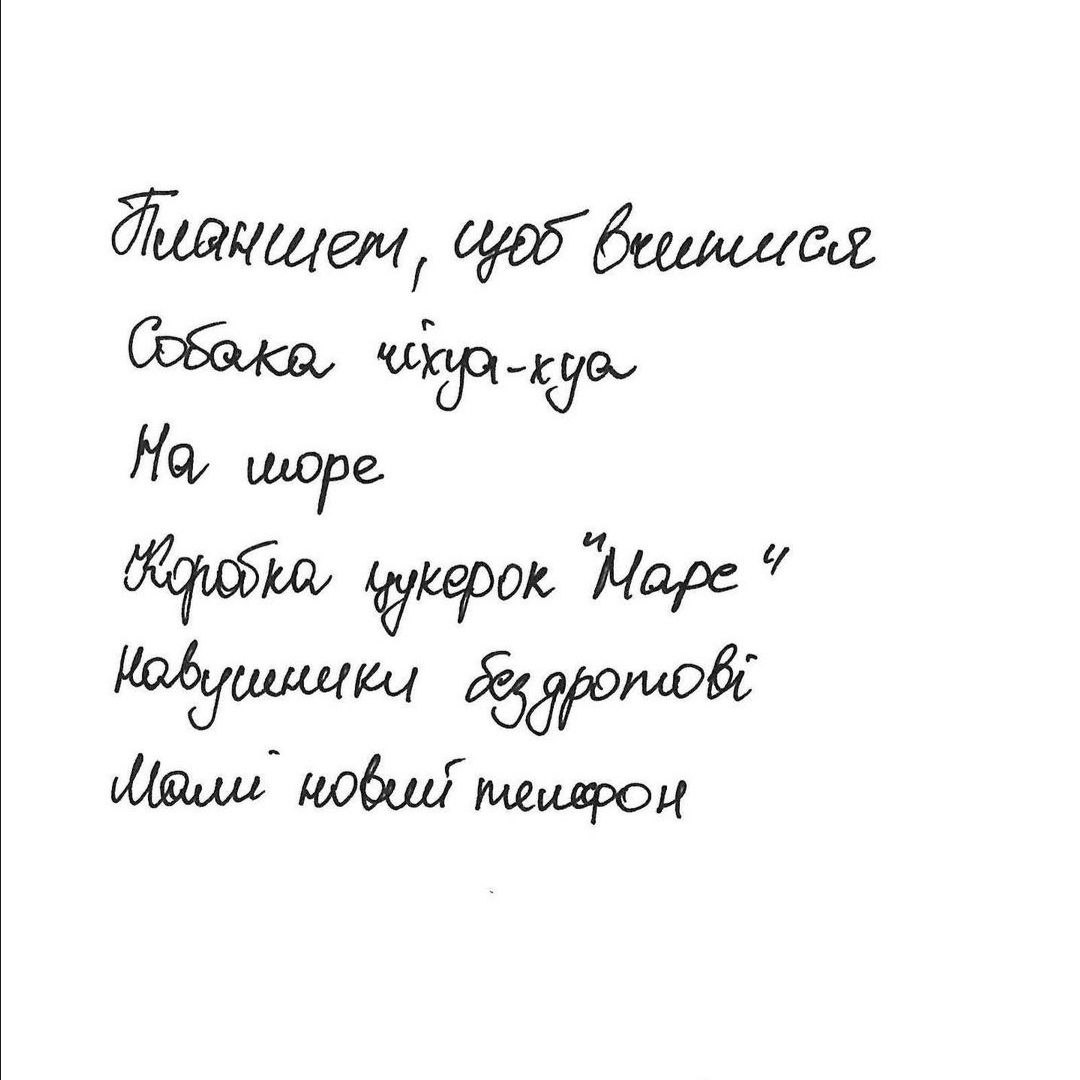 Планшет, щоб вчитися
Собака чіхуа-хуа
На море
Коробка цукерок "Маре"
навушники бездротові
Мамі новий телефон